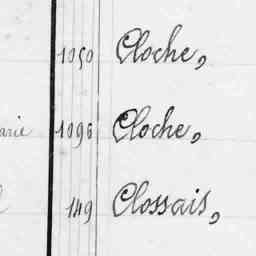 1050 Cloche,
arie 1096 Cloche,
149 Clossais,